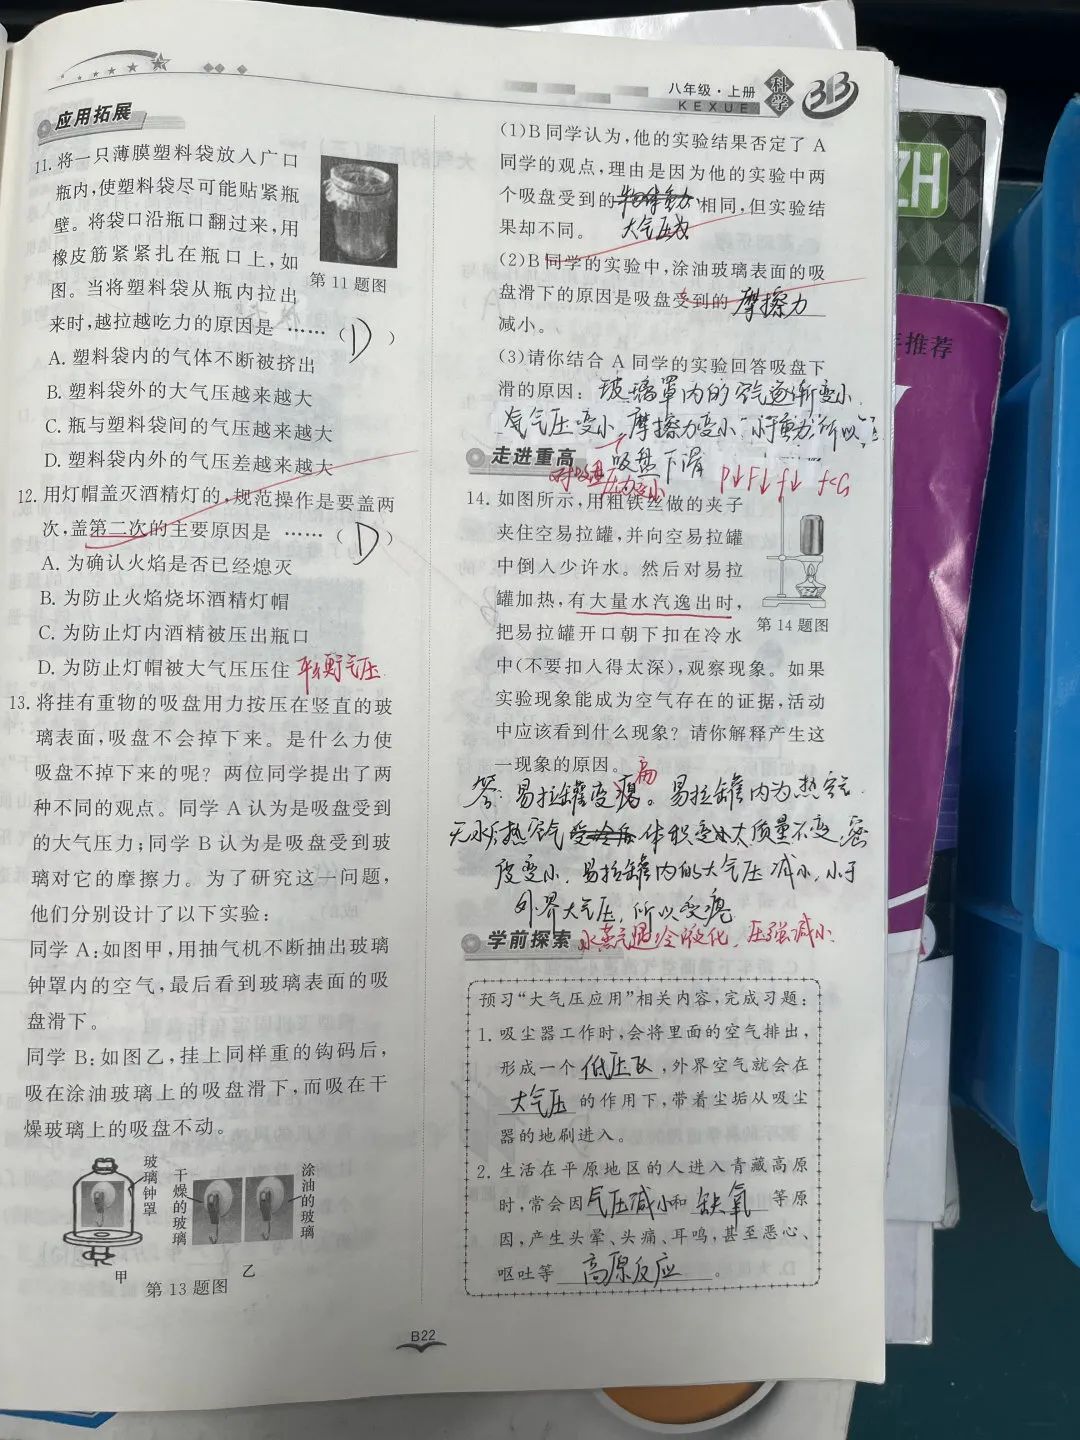 八年级·上册
KEXUE
科学
3B
应用拓展
11. 将一只薄膜塑料袋放入广口
瓶内,使塑料袋尽可能贴紧瓶
壁。将袋口沿瓶口翻过来,用
橡皮筋紧紧扎在瓶口上,如
图。当将塑料袋从瓶内拉出
第11题图
来时,越拉越吃力的原因是 ……( D )
A. 塑料袋内的气体不断被挤出
B. 塑料袋外的大气压越来越大
C. 瓶与塑料袋间的气压越来越大
D. 塑料袋内外的气压差越来越大
12. 用灯帽盖灭酒精灯的,规范操作是要盖两
次,盖第二次的主要原因是 ……( D )
A. 为确认火焰是否已经熄灭
B. 为防止火焰烧坏酒精灯帽
C. 为防止灯内酒精被压出瓶口
D. 为防止灯帽被大气压压住 平衡气压
13. 将挂有重物的吸盘用力按压在竖直的玻
璃表面,吸盘不会掉下来。是什么力使
吸盘不掉下来的呢？两位同学提出了两
种不同的观点。同学A认为是吸盘受到
的大气压力;同学B认为是吸盘受到玻
璃对它的摩擦力。为了研究这一问题,
他们分别设计了以下实验:
同学A:如图甲,用抽气机不断抽出玻璃
钟罩内的空气,最后看到玻璃表面的吸
盘滑下。
同学B:如图乙,挂上同样重的钩码后,
吸在涂油玻璃上的吸盘滑下,而吸在干
燥玻璃上的吸盘不动。
玻璃钟罩
干燥的玻璃
涂油的玻璃
甲
乙
第13题图
(1)B同学认为,他的实验结果否定了A
同学的观点,理由是因为他的实验中两
个吸盘受到的 相同,但实验结
果却不同。 大气压力
(2)B同学的实验中,涂油玻璃表面的吸
盘滑下的原因是吸盘受到的 摩擦力
减小。
(3)请你结合A同学的实验回答吸盘下
滑的原因: 玻璃罩内的空气逐渐变小
气压变小,摩擦力变小 小于重力,所以
吸盘下滑
对吸盘压力变小
P↓F↓f↓ f<G
走进重高
14. 如图所示,用粗铁丝做的夹子
夹住空易拉罐,并向空易拉罐
中倒入少许水。然后对易拉
罐加热,有大量水汽逸出时,
把易拉罐开口朝下扣在冷水
第14题图
中(不要扣入得太深),观察现象。如果
实验现象能成为空气存在的证据,活动
中应该看到什么现象？请你解释产生这
一现象的原因。
扁
答:易拉罐变瘪。易拉罐内为热空气
热空气 体积变 质量不变,密
度变小,易拉罐内的大气压减小,小于
外界大气压,所以变瘪
水蒸气遇冷液化,压强减小
学前探索
预习“大气压应用”相关内容,完成习题:
1. 吸尘器工作时,会将里面的空气排出,
形成一个 低压区 ,外界空气就会在
大气压 的作用下,带着尘垢从吸尘
器的地刷进入。
2. 生活在平原地区的人进入青藏高原
时,常会因 气压减小 和 缺氧 等原
因,产生头晕、头痛、耳鸣,甚至恶心、
呕吐等 高原反应 。
B22
ZH
推荐